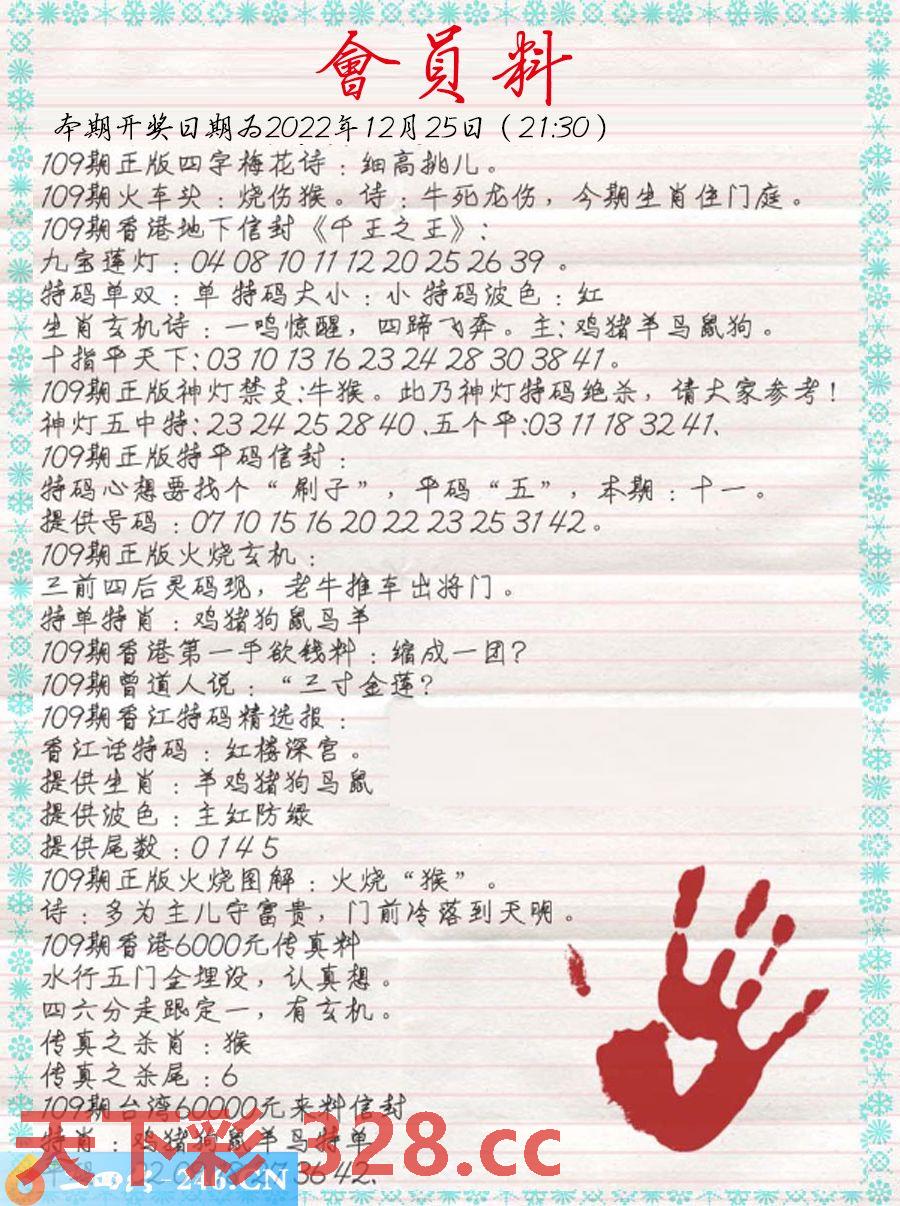 會員料
本期开奖日期为2022年12月25日（21:30）
109期正版四字梅花诗：细高挑儿。
109期火车头：烧伤猴。诗：牛死龙伤，今期生肖住门庭。
109期香港地下信封《千王之王》：
九宝莲灯：04 08 10 11 12 20 25 26 39 。
特码单双：单 特码大小：小 特码波色：红
生肖玄机诗：一鸣惊醒，四蹄飞奔。主：鸡猪羊马鼠狗。
十指平天下：03 10 13 16 23 24 28 30 38 41。
109期正版神灯禁支:牛猴。此乃神灯特码绝杀，请大家参考！
神灯五中特：23 24 25 28 40 、五个平：03 11 18 32 41、
109期正版特平码信封：
特码心想要找个“刷子”，平码“五”，本期：十一。
提供号码：07 10 15 16 20 22 23 25 31 42。
109期正版火烧玄机：
三前四后灵码现，老牛推车出将门。
特单特肖：鸡猪狗鼠马羊
109期香港第一手欲钱料：缩成一团？
109期曾道人说：“三寸金莲？
109期香江特码精选报：
香江话特码：红楼深宫。
提供生肖：羊鸡猪狗马鼠
提供波色：主红防绿
提供尾数：0 1 4 5
109期正版火烧图解：火烧“猴”。
诗：多为主儿守富贵，门前冷落到天明。
109期香港6000元传真料
水行五门金埋设，认真想。
四六分走跟定一，有玄机。
传真之杀肖：猴
传真之杀尾：6
109期台湾60000元来料信封
特肖：鸡猪狗鼠羊马特单
36 42、
天下彩 328.cc
246.CN